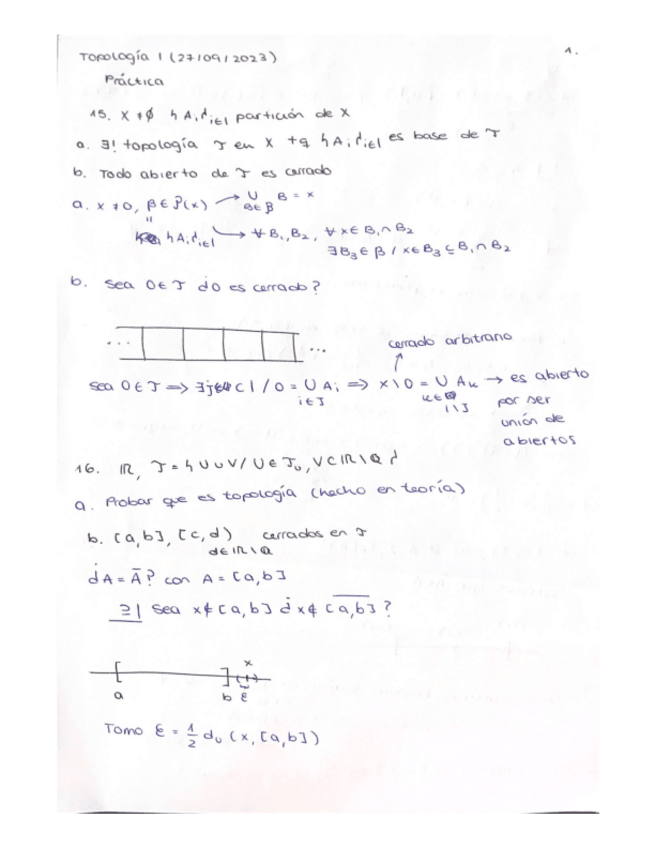 Topología 1 (27/09/2023)
1.
Práctica
15. X ≠ ∅ {Ai}i∈I partición de X
a. ∃! topología T en X tq {Ai}i∈I es base de T
b. Todo abierto de T es cerrado
a. X ≠ ∅, β ∈ P(X) → ∪ B∈β B = X
{Ai}i∈I → ∀ B1, B2, ∀x ∈ B1 ∩ B2
∃B3 ∈ β / x ∈ B3 ⊆ B1 ∩ B2
b. Sea O ∈ T ¿O es cerrado?
... ...
cerrado arbitrario
Sea O ∈ T ⇒ ∃J ⊂ I / O = ∪ i∈J Ai ⇒ X\O = ∪ k∈I\J Ak → es abierto
por ser
unión de
abiertos
16. ℝ, T = {U ∪ V / U ∈ Tu, V ⊂ ℝ\ℚ}
a. Probar que es topología (hecho en teoría)
b. [a,b], [c,d) cerrados en T
d ∈ ℝ\ℚ
¿A = Ā? con A = [a,b]
⊇| Sea x ∉ [a,b] ¿x ∉ \overline{[a,b]}?
x
a b ε
Tomo ε = 1/2 du (x, [a,b])